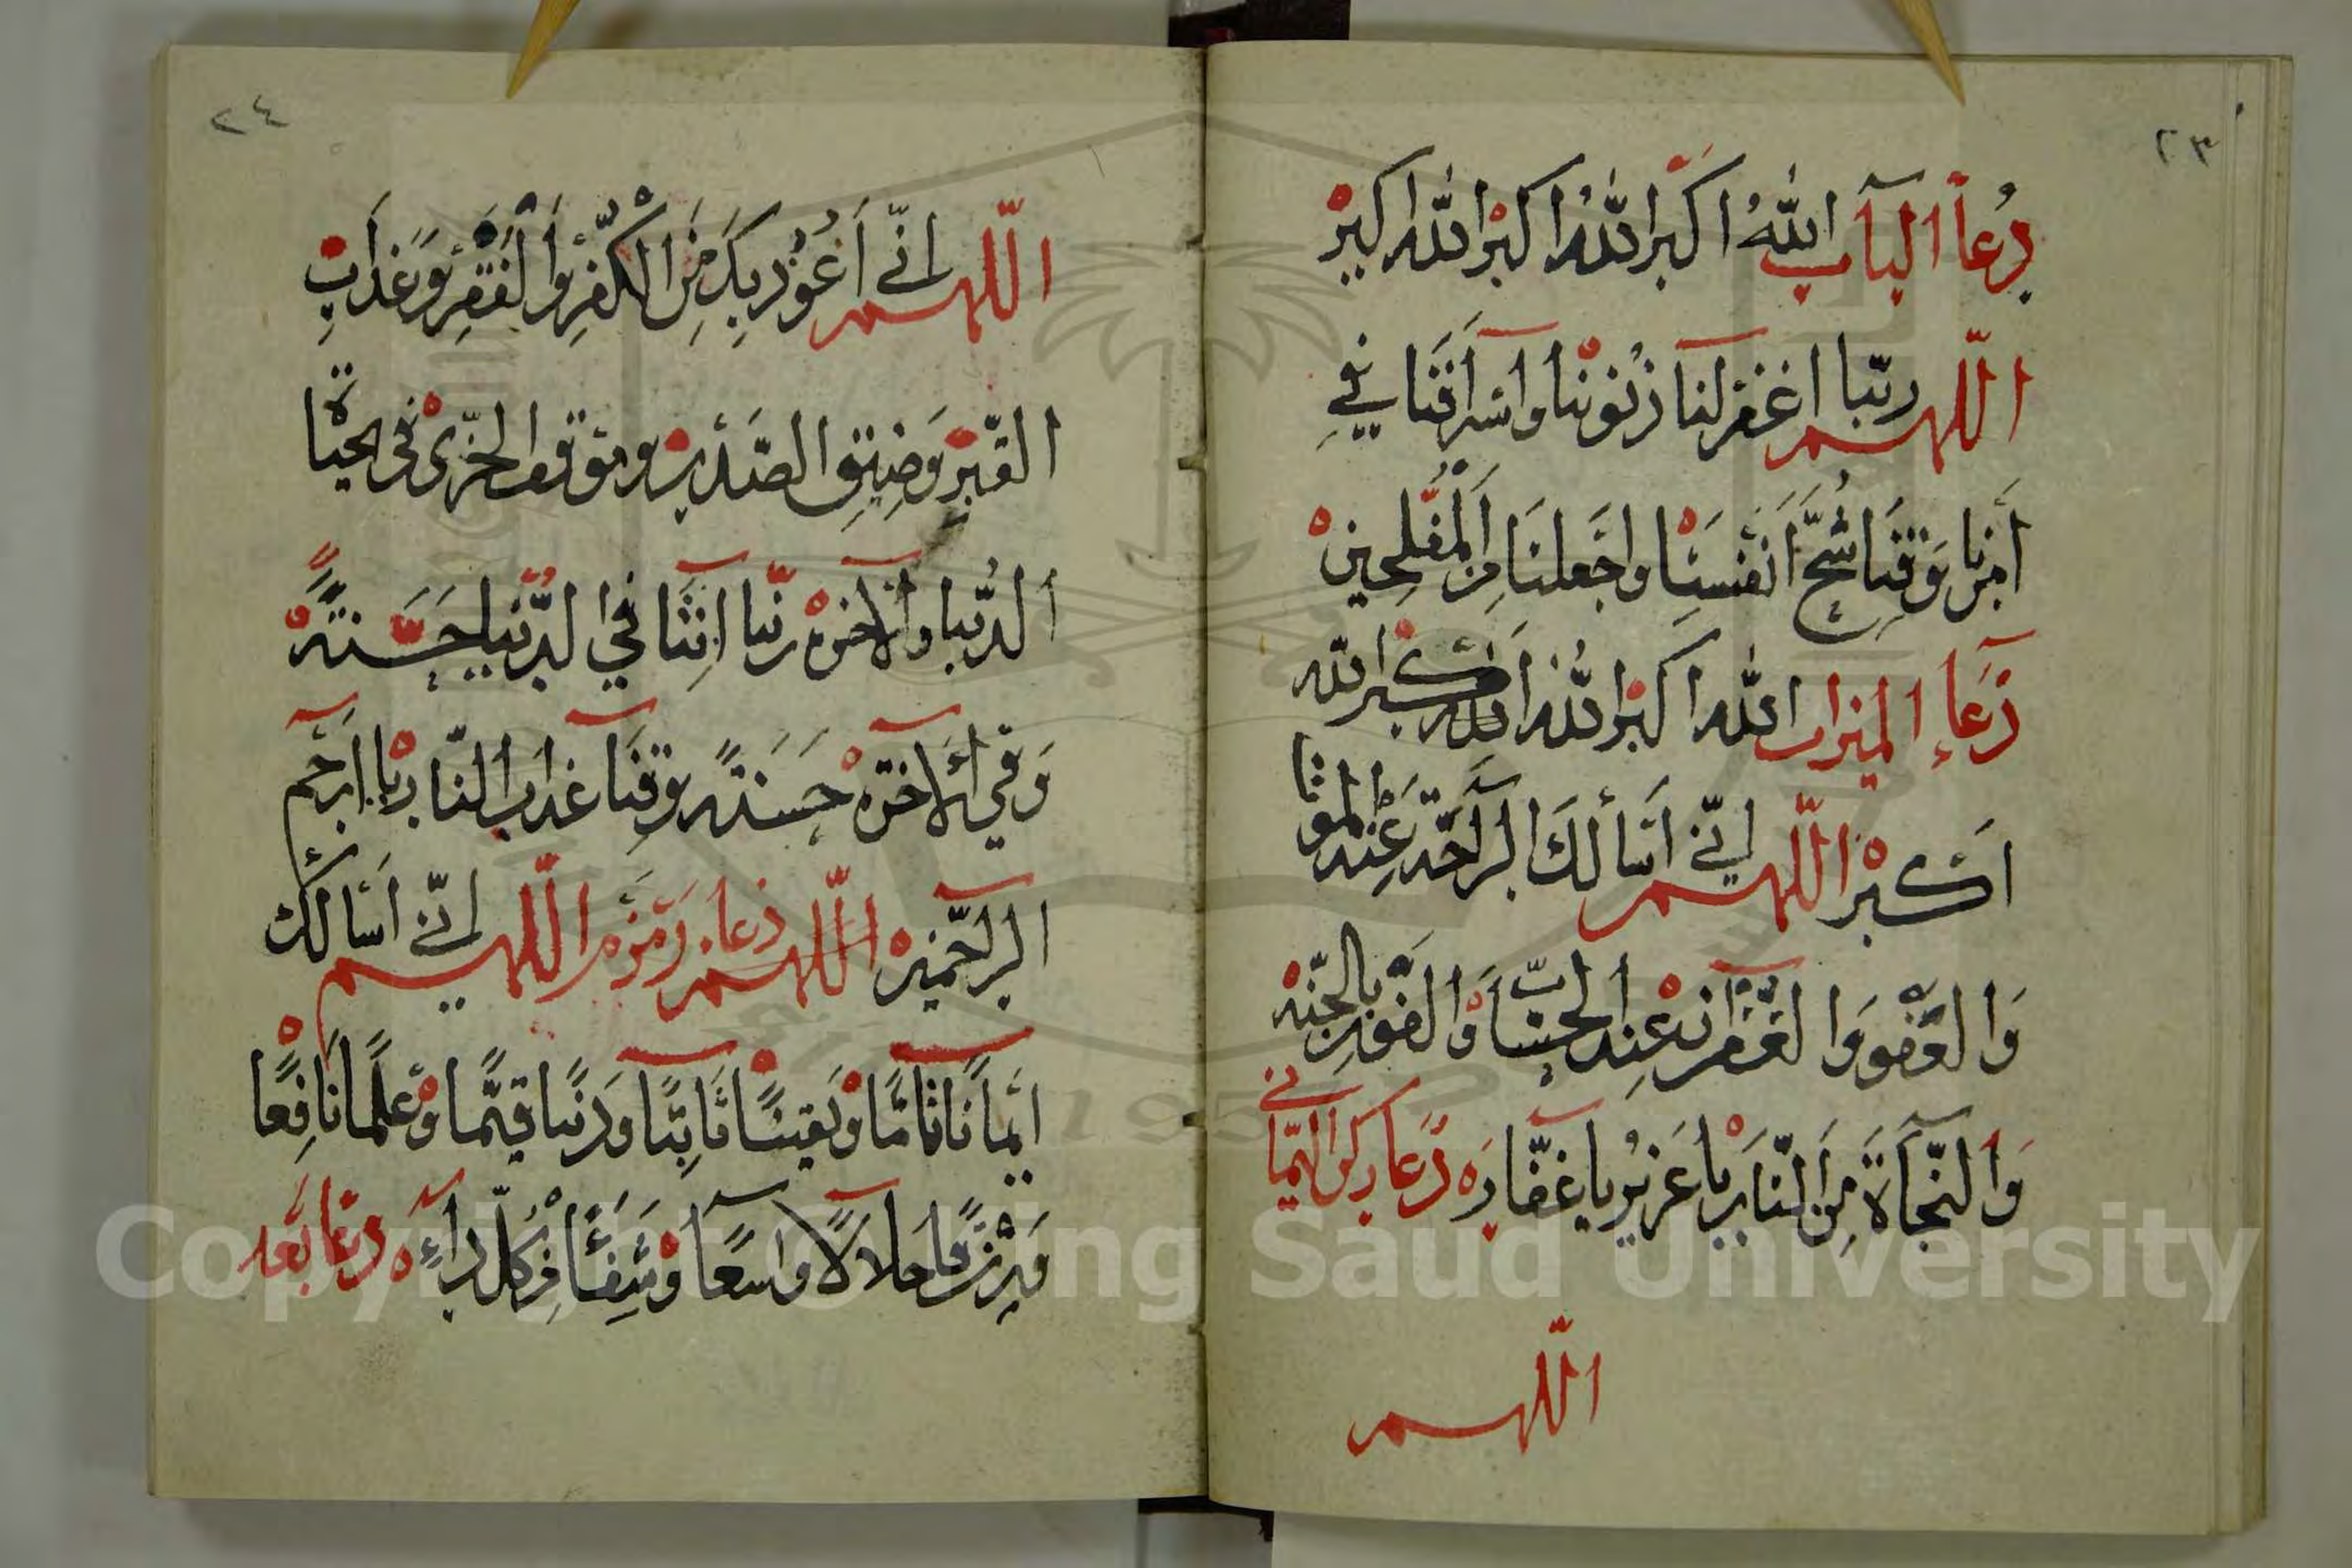 ٢٣
دُعاۤا الباۤب اللّٰهُ اكبر اللّٰهُ اكبر اللّٰه اكبر
اللّهم ربّنا اغفر لنا ذنوبنا واسرافنا في
أمرنا وقنا شُحَّ انفسنا واجعلنا من المفلحين
دُعاۤء الميزاب اللّٰه اكبر اللّٰه اكبر اللّٰه
اكبر اللّهم إنّي اسألك الراحة عند الموت
والعفو والغفران عند الحسّاب والفوز بالجنّة
والنّجاة من النّار يا عزيز يا غفّار دعا ركن اليماني
اللّهم
٢٤
اللّهم انّي أعوذ بك من الكفر والفقر وعذاب
القبر وضيق الصّدر وموقف الخزى في الحياة
الدّنيا والاخرة ربّنا اتنا في الدّنيا حسنةً
وفي الاخرة حسنةً وقنا عذاب النّار يا ارحم
الراحمين اللّهم دعاء زمزم اللّهم انّي اسألك
ايماناً تامّاً ويقيناً ثابتاً وديناً قيّماً وعلماً نافعًا
ورزقًا حلالًا واسعًا وشفاۤءً من كلّ داۤءٍ دعا بعد
Copyright © King Saud University